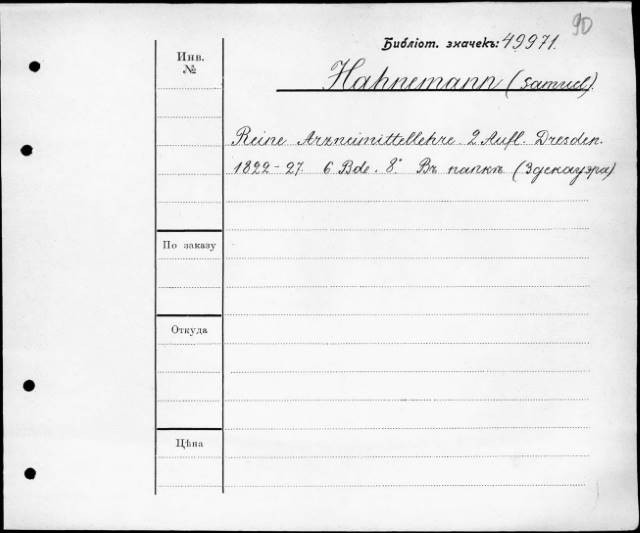 90
Библіот. значекъ: 49971.
Инв.
№
Hahnemann (Samuel).
Reine Arzneimittellehre. 2 Aufl. Dresden.
1822-27. 6 Bde. 8° Въ папкѣ (Здекауэра)
По заказу
Откуда
Цѣна